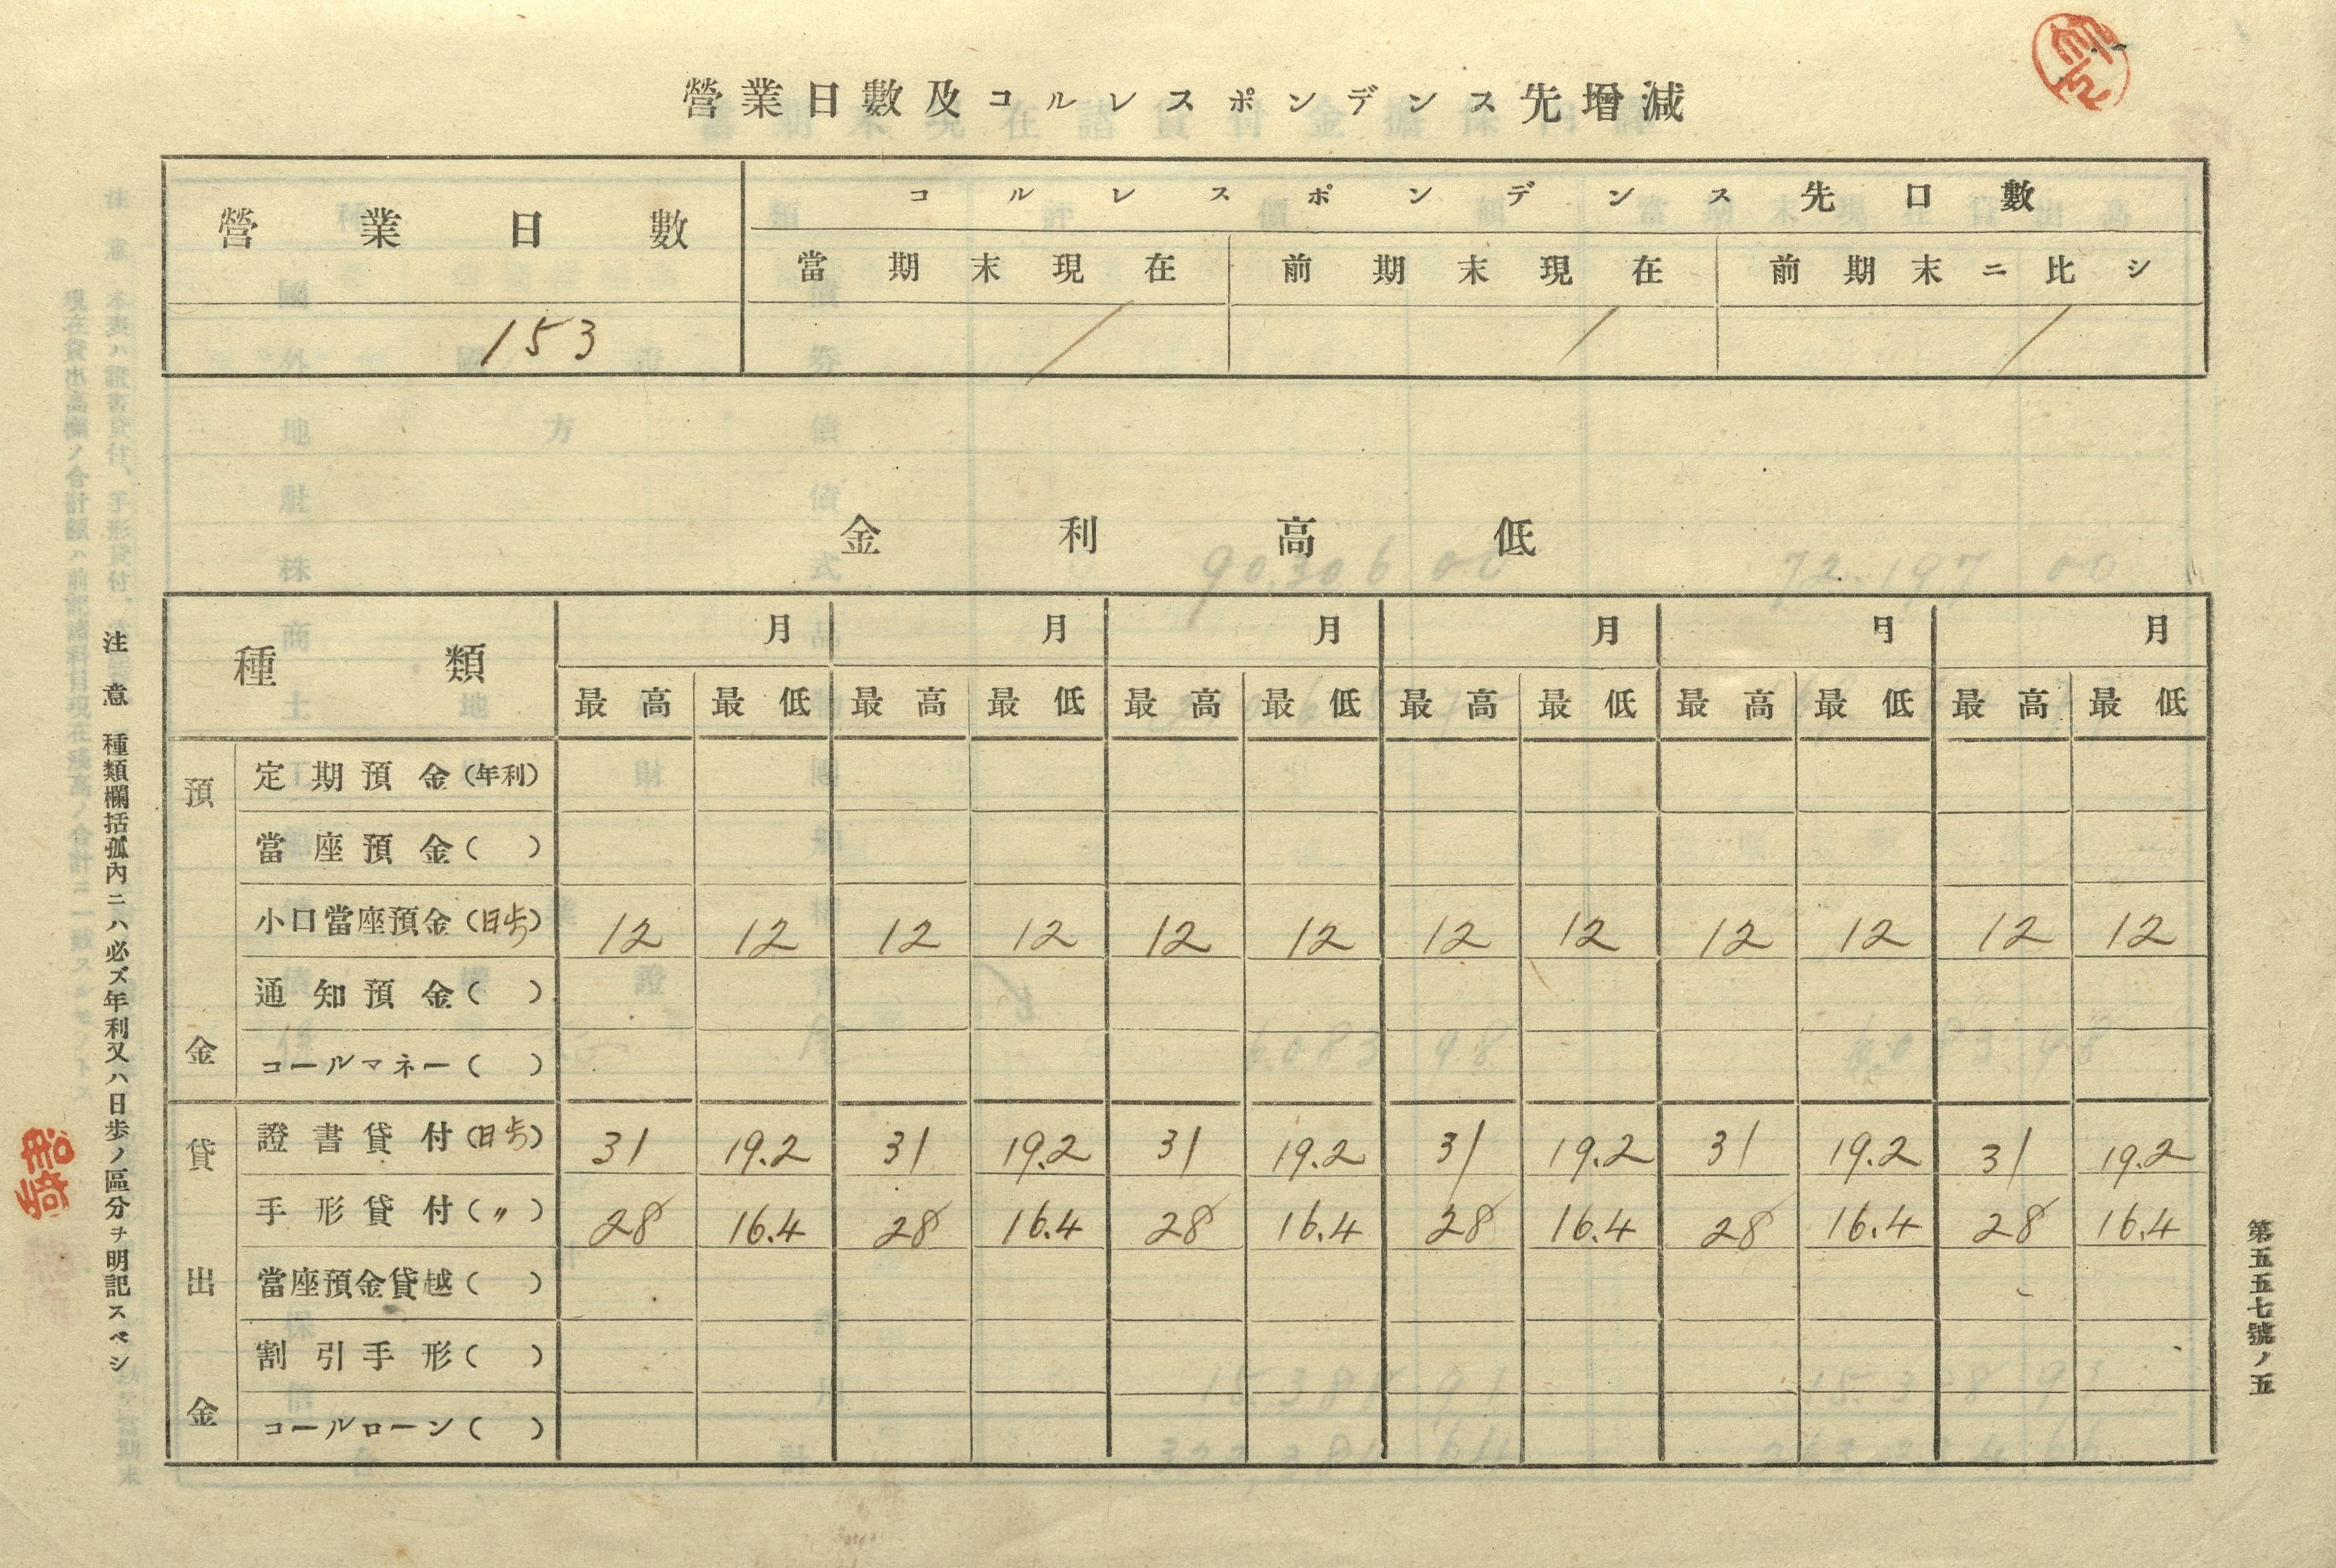 營業日數及コルレスポンデンス先增減
營業日數 コルレスポンデンス先口數
當期末現在 前期末現在 前期末ニ比シ
153 / / /
金利高低
種類 月 月 月 月 月 月
最高 最低 最高 最低 最高 最低 最高 最低 最高 最低 最高 最低
預金
定期預金(年利)
當座預金( )
小口當座預金(日歩) 12 12 12 12 12 12 12 12 12 12 12 12
通知預金( )
コールマネー( )
貸出金
證書貸付(日歩) 31 19.2 31 19.2 31 19.2 31 19.2 31 19.2 31 19.2
手形貸付(〃) 28 16.4 28 16.4 28 16.4 28 16.4 28 16.4 28 16.4
當座預金貸越( )
割引手形( )
コールローン( )
注意 種類欄括孤內ニハ必ズ年利又ハ日歩ノ區分ヲ明記スベシ
第五五七號ノ五